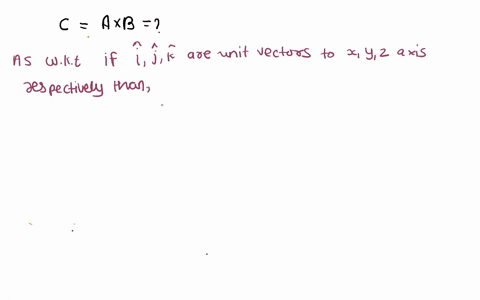 C = A×B = ?
As w.k.t if î, ĵ, k̂ are unit vectors to x, y, z axis
respectively than,